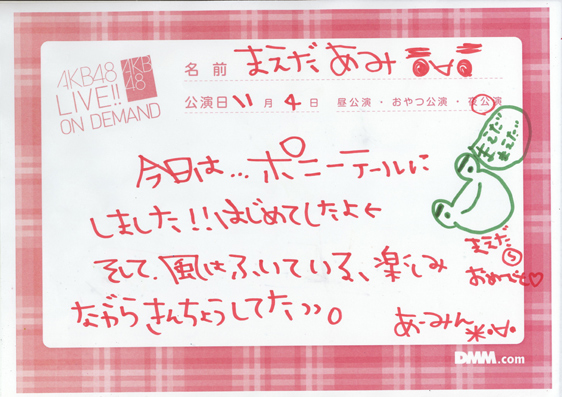 AKB48
LIVE!!
ON DEMAND
AKB
48
名前 まえだ あみ
公演日 11月4日 昼公演・おやつ公演・夜公演
今日は…ポニーテールに
しました!!はじめてしたよ
そして、風はふいている、楽しみ
ながらきんちょうしてたっっ。
あーみん
まえだ
おめでと♡
DMM.com